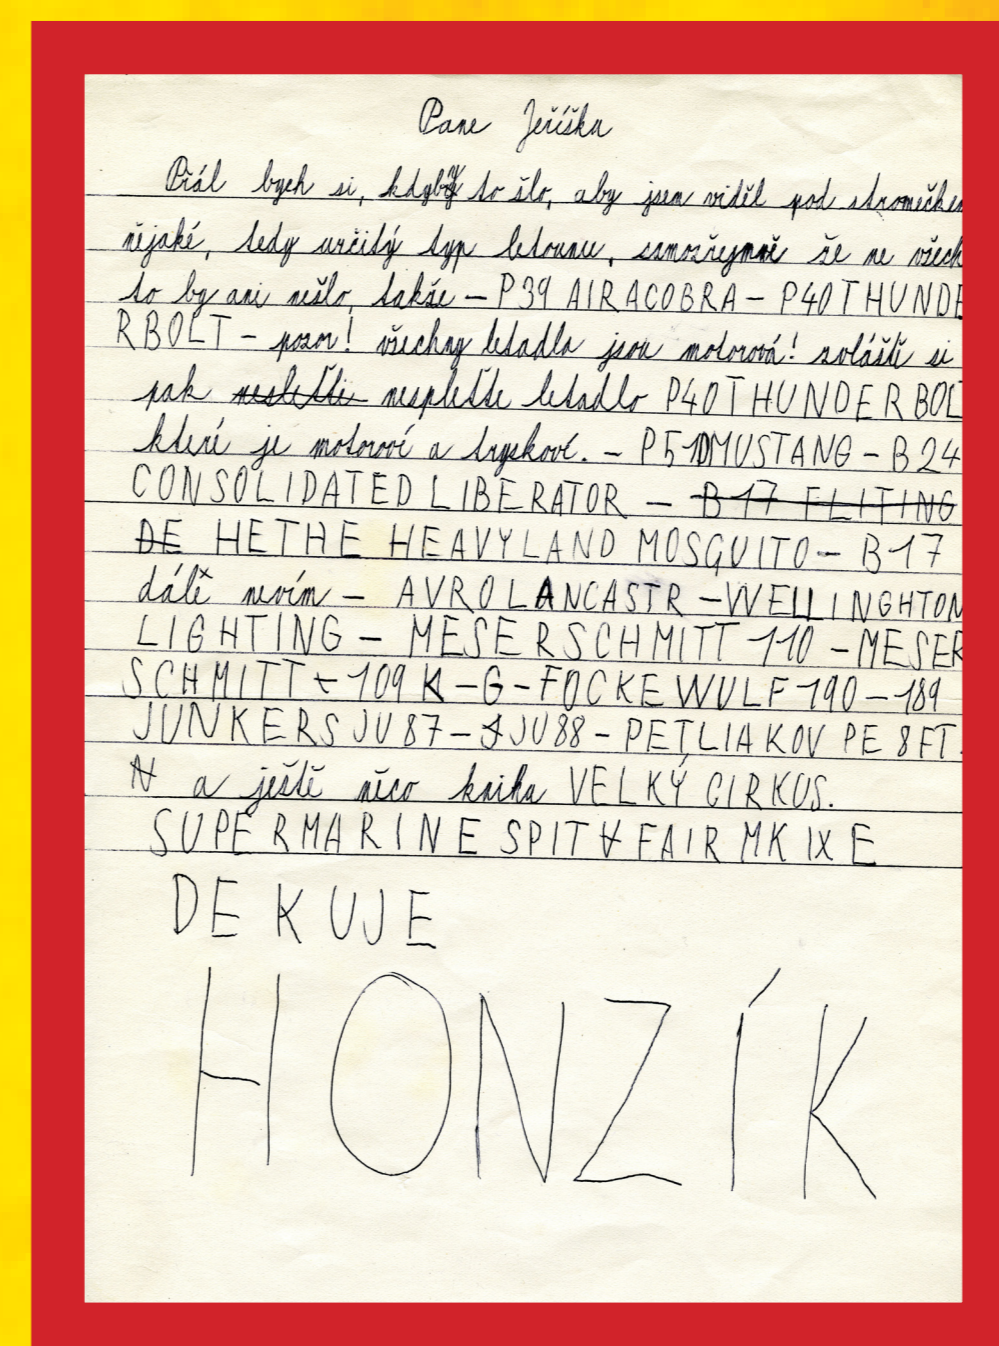 Pane Ježíšku
Přál bych si, kdyby to šlo, aby jsem viděl pod stromečkem
nějaké, tedy určitý typ letounu, samozřejmně že ne všech
to by ani nešlo, takže – P39 AIRACOBRA – P40THUNDE
RBOLT – pozor! všechny letadla jsou motorová! zvláště si
pak nespleťte letadlo P40THUNDERBOL
které je motorové a tryskové. – P51DMUSTANG – B24
CONSOLIDATED LIBERATOR – B17 FLITING
DE HETHE HEAVYLAND MOSGUITO – B17
dálě nevím – AVRO LANCASTR – WELLINGHTON
LIGHTING – MESERSCHMITT 110 – MESER
SCHMITT – 109 K – G – FOCKE WULF 190 – 189
JUNKERS JU87 – JU88 – PETLIAKOV PE 8FT.
N a ještě něco kniha VELKÝ CIRKUS.
SUPERMARINE SPIT FAIR MK IX E
DEKUJE
HONZÍK